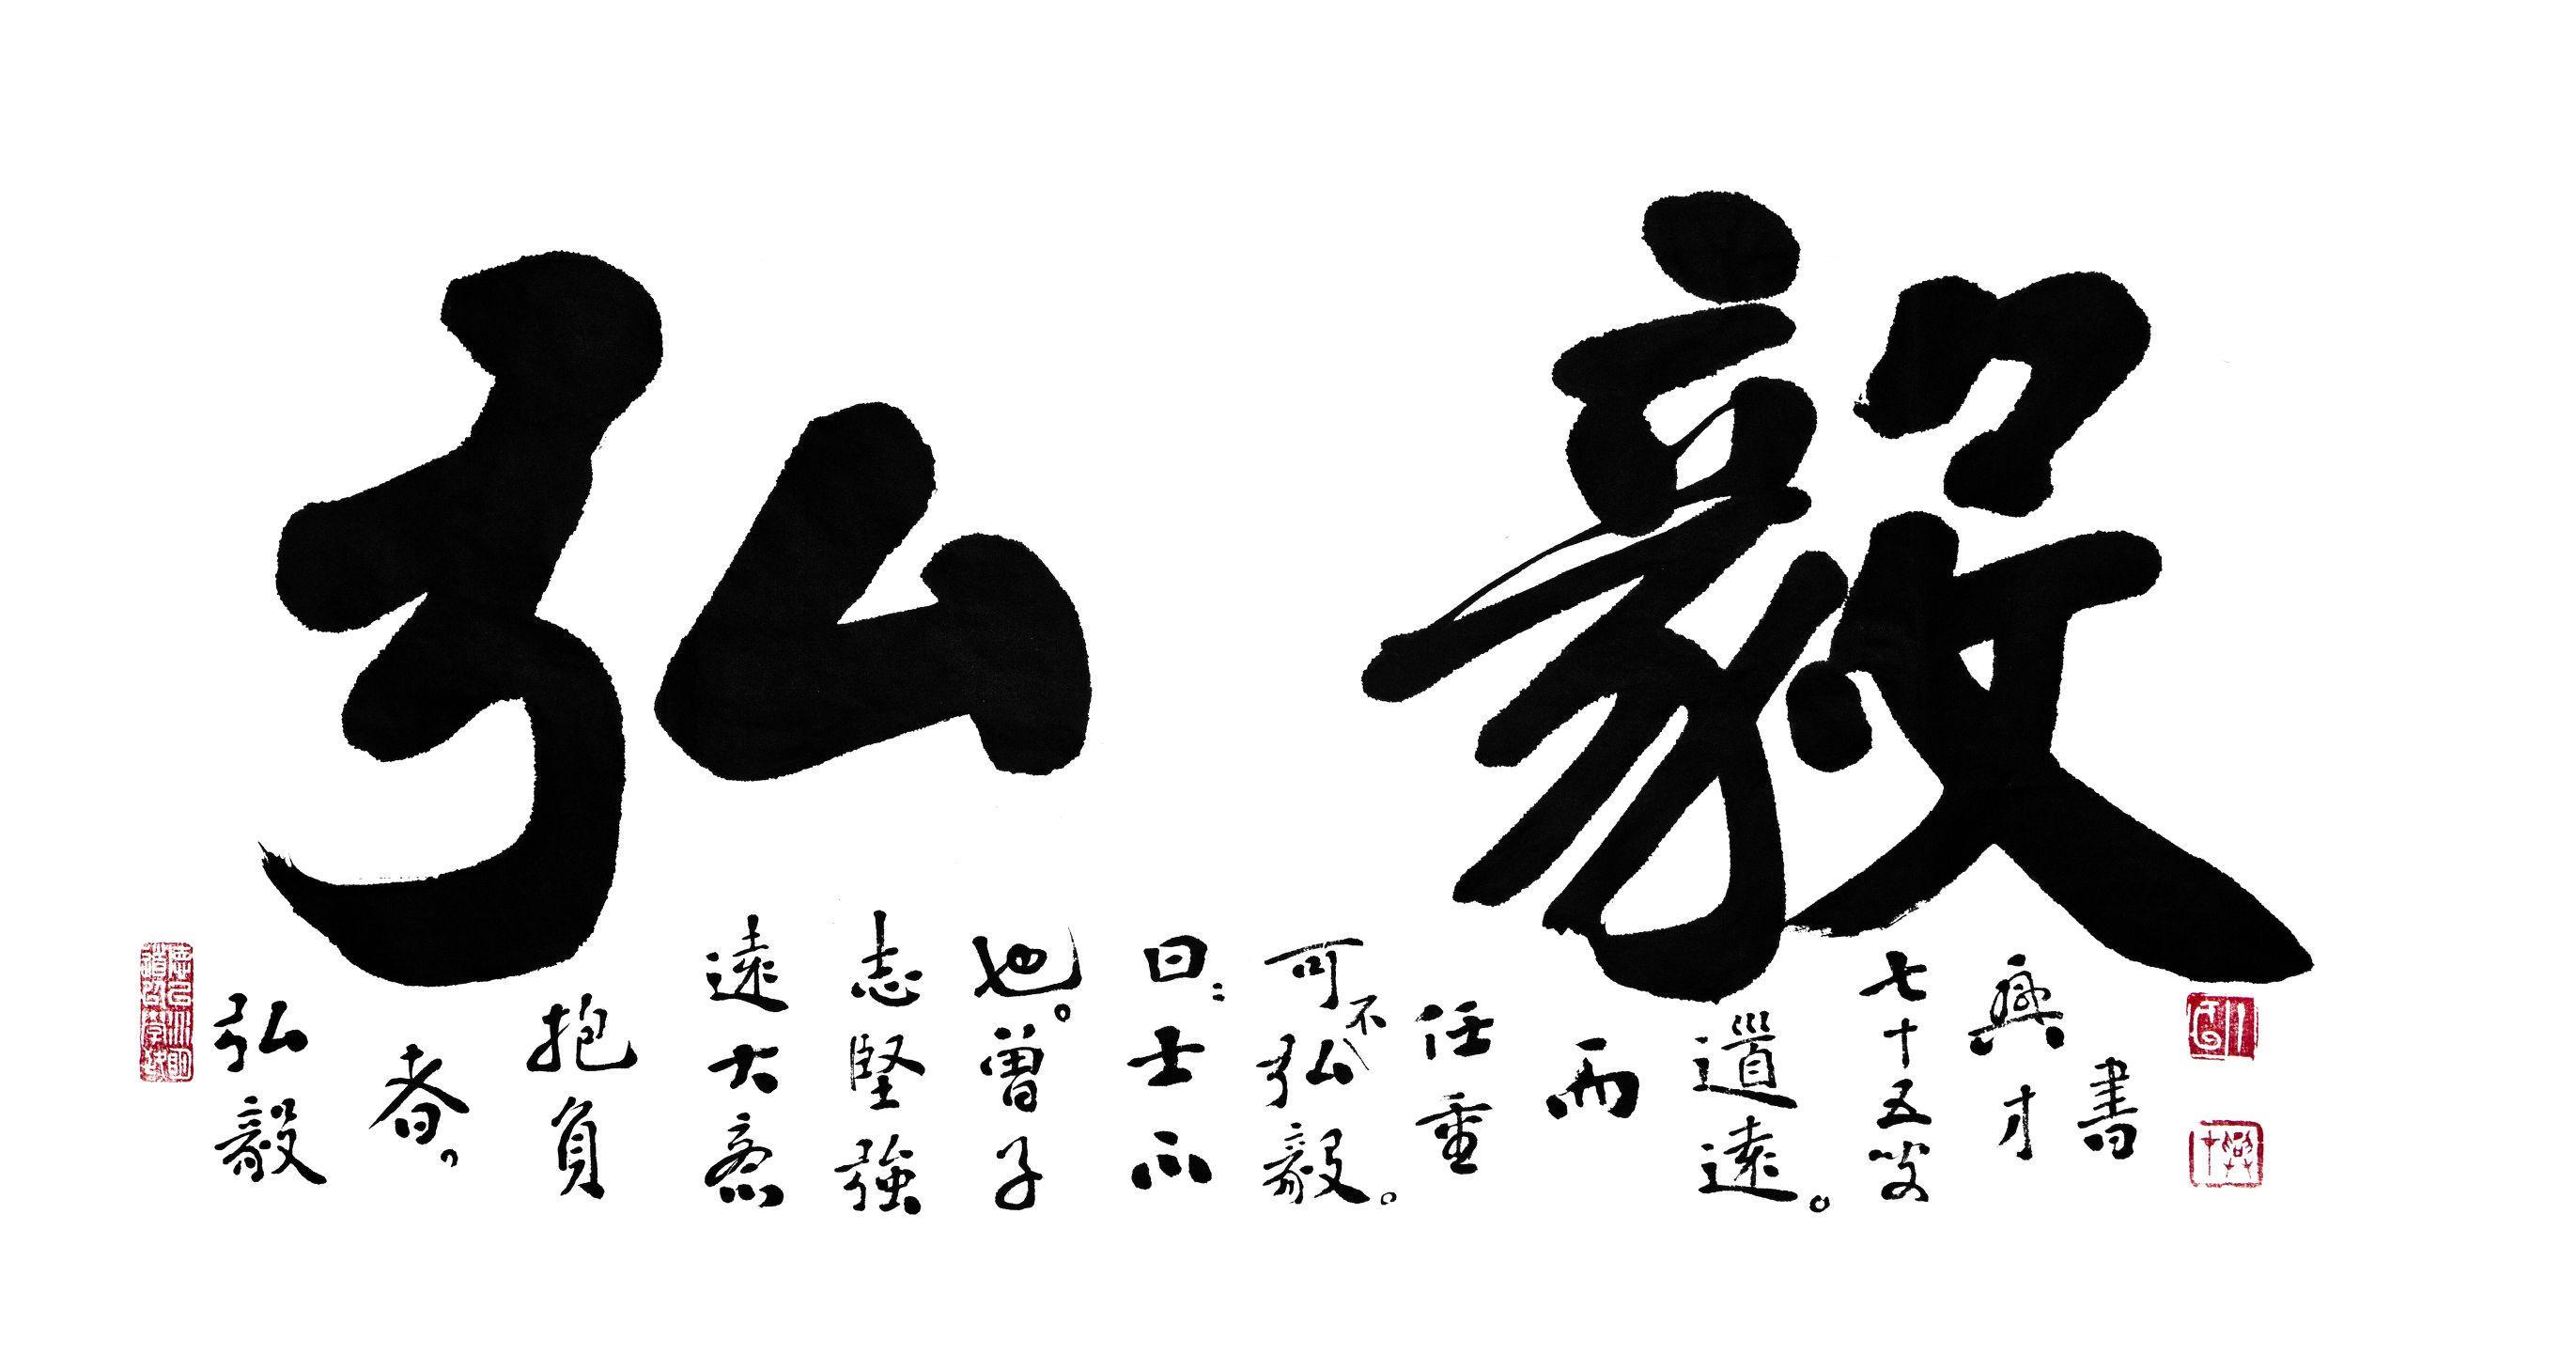 弘毅
弘毅
者。
抱負
遠大意
志堅強
也。曾子
曰:士不
可不弘毅。
任重
而
道遠。
七十五叟
興才
書